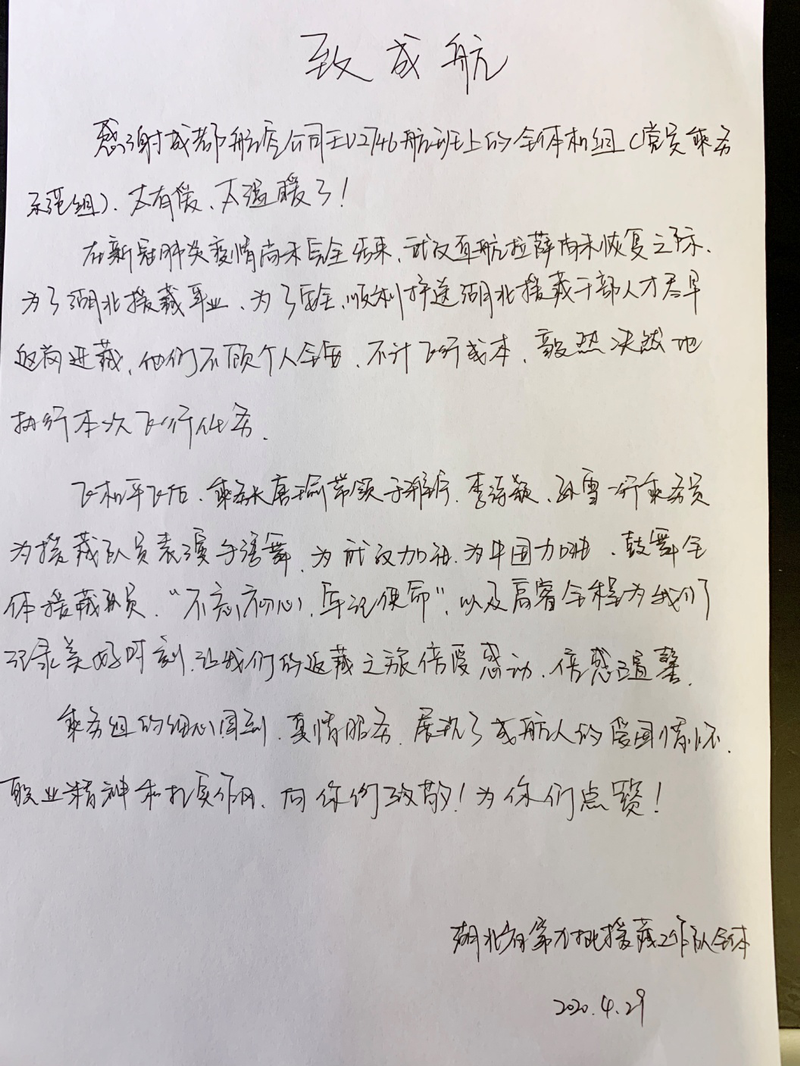 致成航
感谢成都航空公司EU2746航班上的全体机组(党员乘务
示范组)、太有爱、太温暖了!
在新冠肺炎疫情尚未完全结束、武汉直航拉萨尚未恢复之际、
为了湖北援藏事业、为了安全、顺利护送湖北援藏干部人才尽早
返岗进藏,他们不顾个人安危、不计飞行成本、毅然决然地
执行本次飞行任务.
飞机平飞后、乘务长唐瑜带领于雅、李诗颖、孙雪一行乘务员
为援藏队员表演手语舞、为武汉加油、为中国加油、鼓舞全
体援藏队员、"不忘初心、牢记使命",以及宾客全程为我们
记录美好时刻、让我们的返藏之旅倍受感动、倍感温馨.
乘务组的细心周到、真情服务、展现了成航人的爱国情怀、
职业精神和扎实作风、向你们致敬!为你们点赞!
湖北省第九批援藏工作队全体
2020.4.29